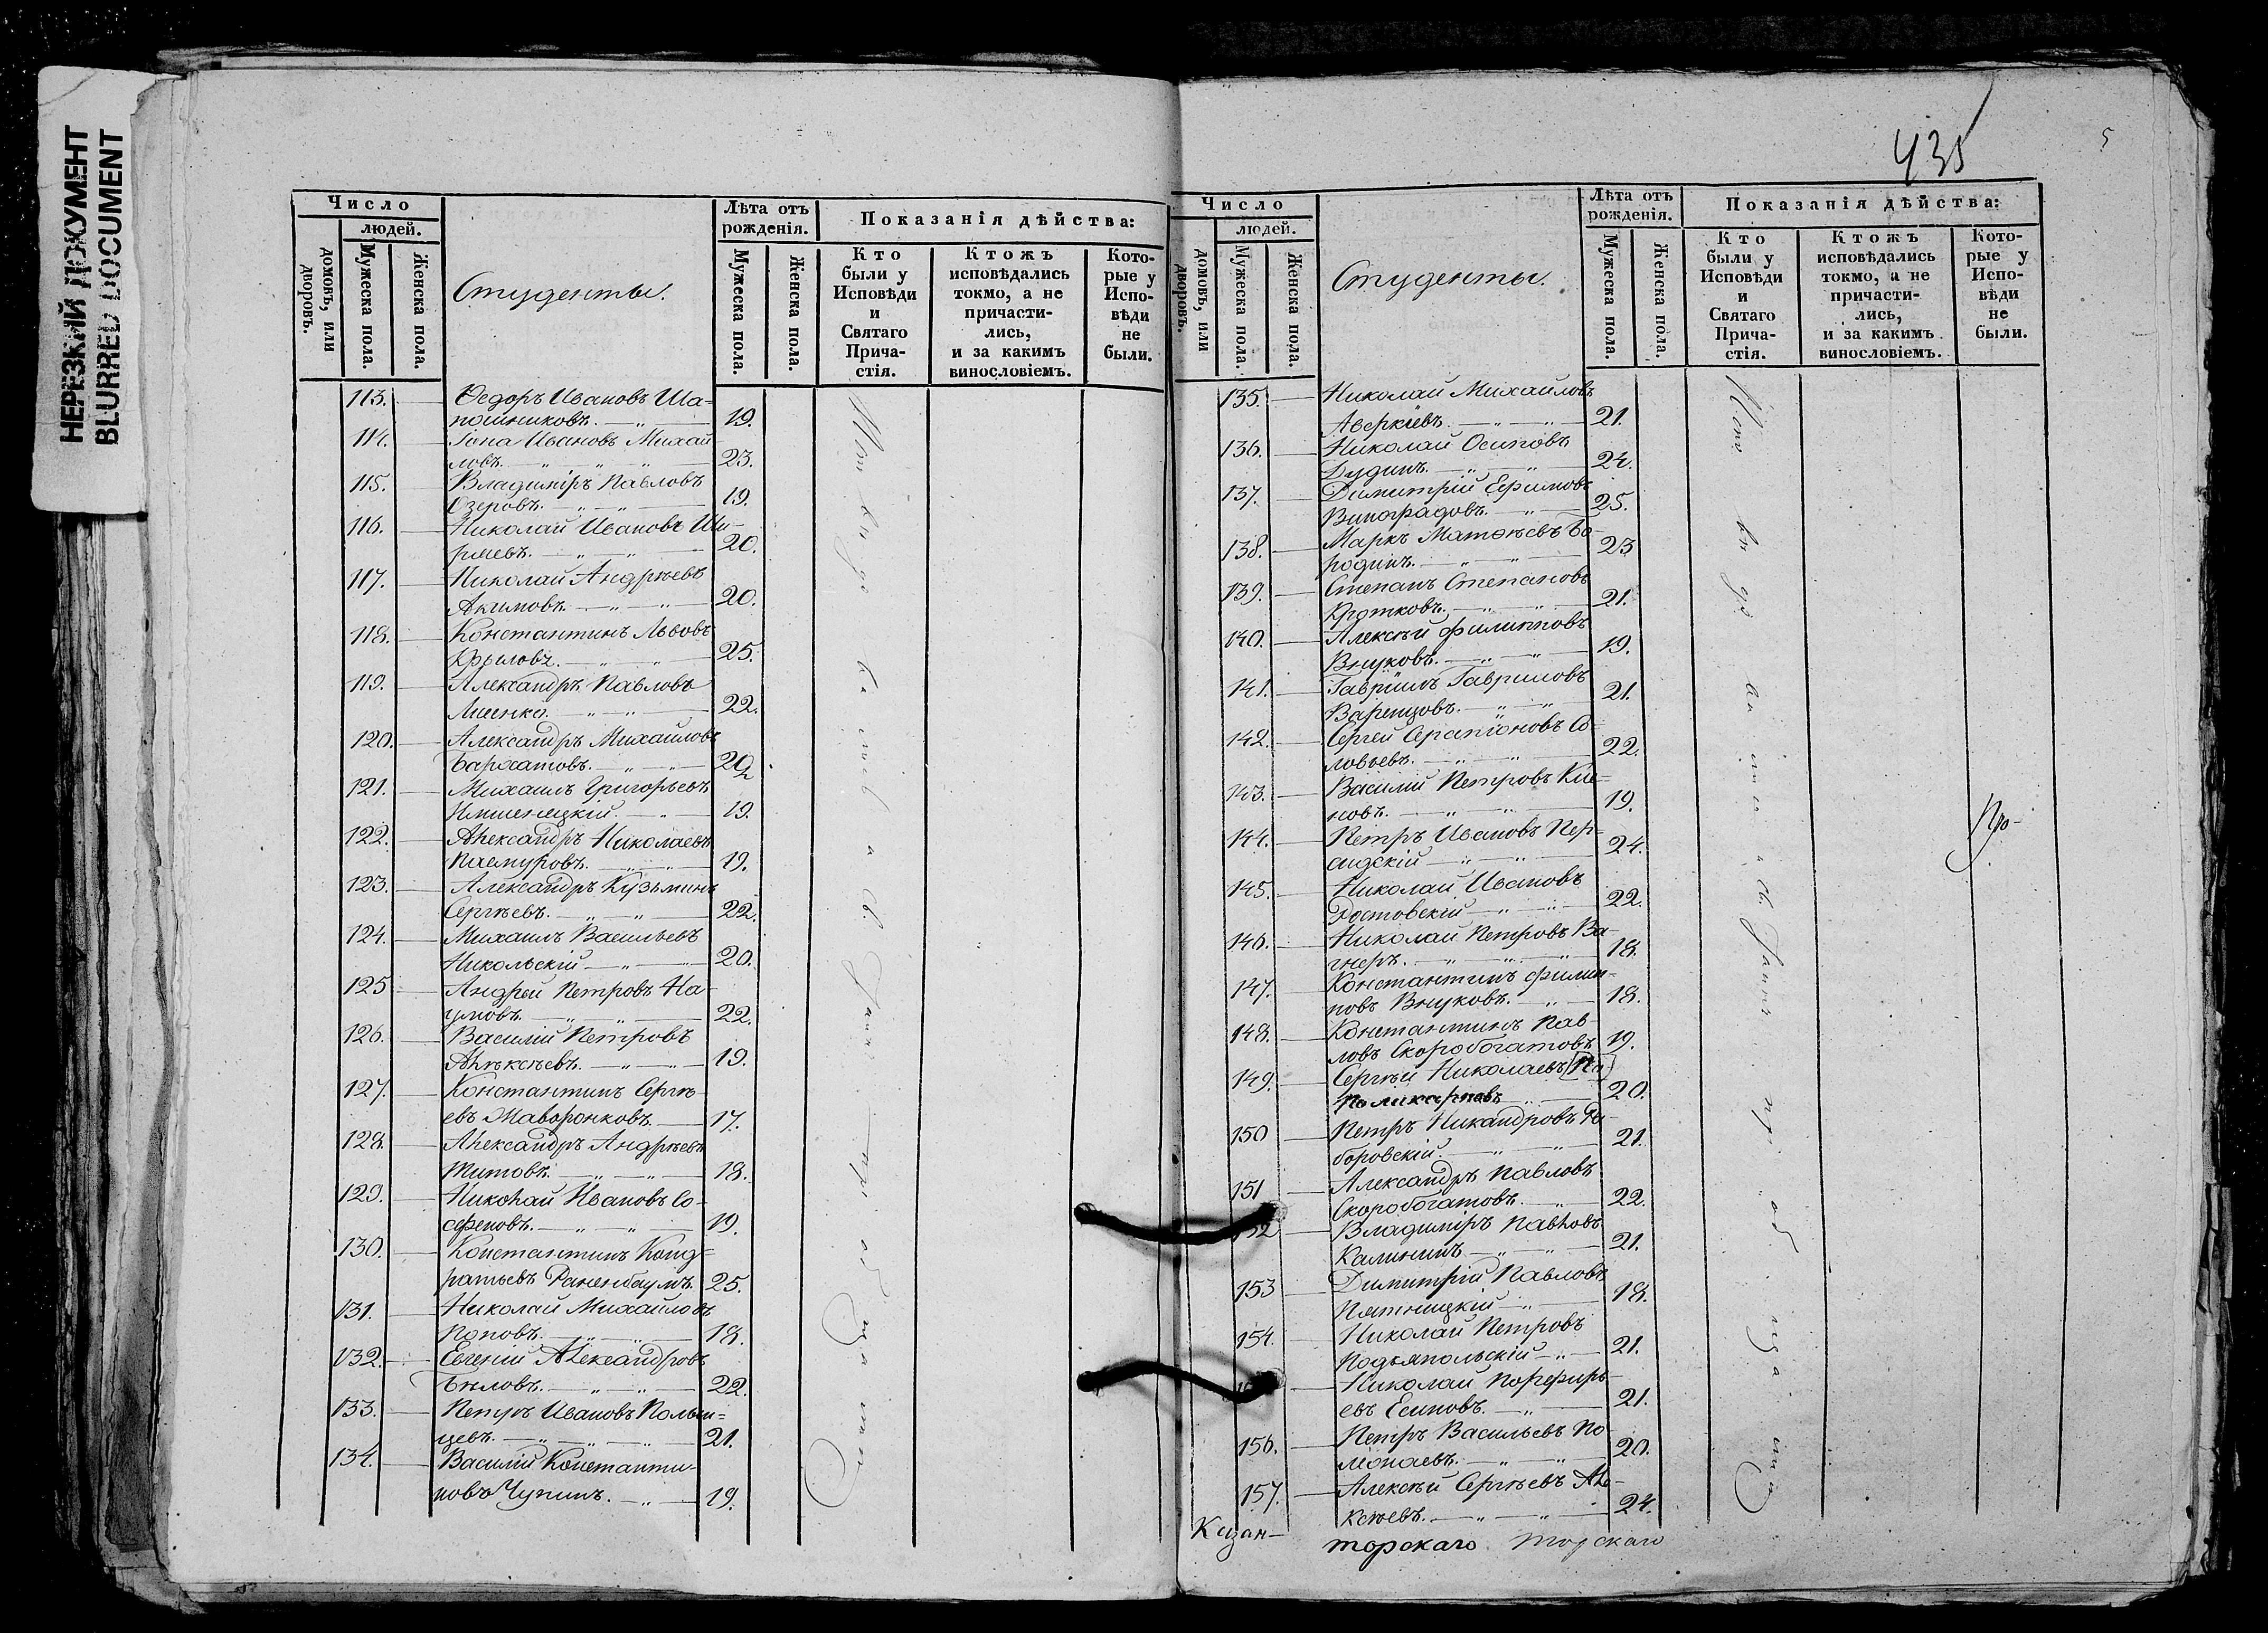 НЕРЕЗКИЙ ДОКУМЕНТ
BLURRED DOCUMENT
Число
людей.
домовъ, или дворовъ.
Мужеска пола.
Женска пола.
Студенты.
Лѣта отъ рожденія.
Мужеска пола.
Женска пола.
Показанія дѣйства:
Кто были у Исповѣди и Святаго Прича-стія.
Ктожъ исповѣдались токмо, а не причасти-лись, и за какимъ винословіемъ.
Кото-рые у Испо-вѣди не были.
113. Ѳедоръ Ивановъ Ша-
пошниковъ. 19.
114. Іона Ивановъ Михай
ловъ. 23.
115. Владиміръ Павловъ
Озеровъ. 19.
116. Николай Ивановъ Ши-
ряевъ. 20.
117. Николай Андреевъ
Акимовъ. 20.
118. Константинъ Львовъ
Крыловъ. 25.
119. Александръ Павловъ
22.
120. Александръ Михаиловъ
Бархатовъ. 20
121. Михаилъ Григорьевъ
19.
122. Александръ Николаевъ
Пасмуровъ. 19.
123. Александръ Кузьминъ
Сергѣевъ. 22.
124. Михаилъ Васильевъ
Никольскій 20.
125 Андрей Петровъ На-
умовъ. 22.
126. Василій Петровъ
Алексѣевъ. 19.
127. Константинъ Сергѣ-
евъ Жаворонковъ. 17.
128. Александръ Андреевъ
Титовъ. 18.
129. Николай Ивановъ Со-
феновъ. 19.
130. Константинъ Конд-
ратьевъ Раненбаумъ. 25.
131. Николай Михайловъ
Поповъ. 18.
132. Евгеній Александровъ
Бѣловъ. 22.
133. Петръ Ивановъ
цевъ. 21.
134. Василій Константи-
новъ Чупинъ. 19.
435
5
Число
людей.
домовъ, или дворовъ.
Мужеска пола.
Женска пола.
Студенты.
Лѣта отъ рожденія.
Мужеска пола.
Женска пола.
Показанія дѣйства:
Кто были у Исповѣди и Святаго Прича-стія.
Ктожъ исповѣдались токмо, а не причасти-лись, и за какимъ винословіемъ.
Кото-рые у Испо-вѣди не были.
135. Николай Михаиловъ
Аверкіевъ. 21.
136. Николай Осиповъ
Дудинъ. 24.
137. Димитрій Ефимовъ
Виноградовъ. 25.
138. Маркъ Матѳѣевъ Бо-
родинъ. 23
139. Степанъ Степановъ
Кротковъ. 21.
140. Алексѣй Филипповъ
Внуковъ. 19.
141. Гавріилъ Гавриловъ
Варенцовъ. 21.
142. Сергей Серапіоновъ Со-
ловьевъ. 22.
143. Василій Петровъ Кле-
новъ. 19.
144. Петръ Ивановъ Пер-
сидскій 24.
145. Николай Ивановъ
Ростовскій 22.
146. Николай Петровъ Ва-
гнеръ. 18.
147. Константинъ Филип-
повъ Внуковъ. 18.
148. Константинъ Пав-
ловъ Скоробогатовъ 19.
149. Сергѣй Николаевъ
Поликарповъ 20.
150 Петръ Никандровъ Ро-
боровскій. 21.
151 Александръ Павловъ
Скоробогатовъ. 22.
152 Владиміръ Павловъ
Калининъ 21.
153 Димитрій Павловъ
Пятницкій 18.
154. Николай Петровъ
Подъяпольскій 21.
Николай Порфирь-
евъ Есиповъ. 21.
156. Петръ Васильевъ По
20.
157. Алексѣй Сергѣевъ Але-
ксѣевъ. 24.
Про-
Казан-
торскаго торскаго